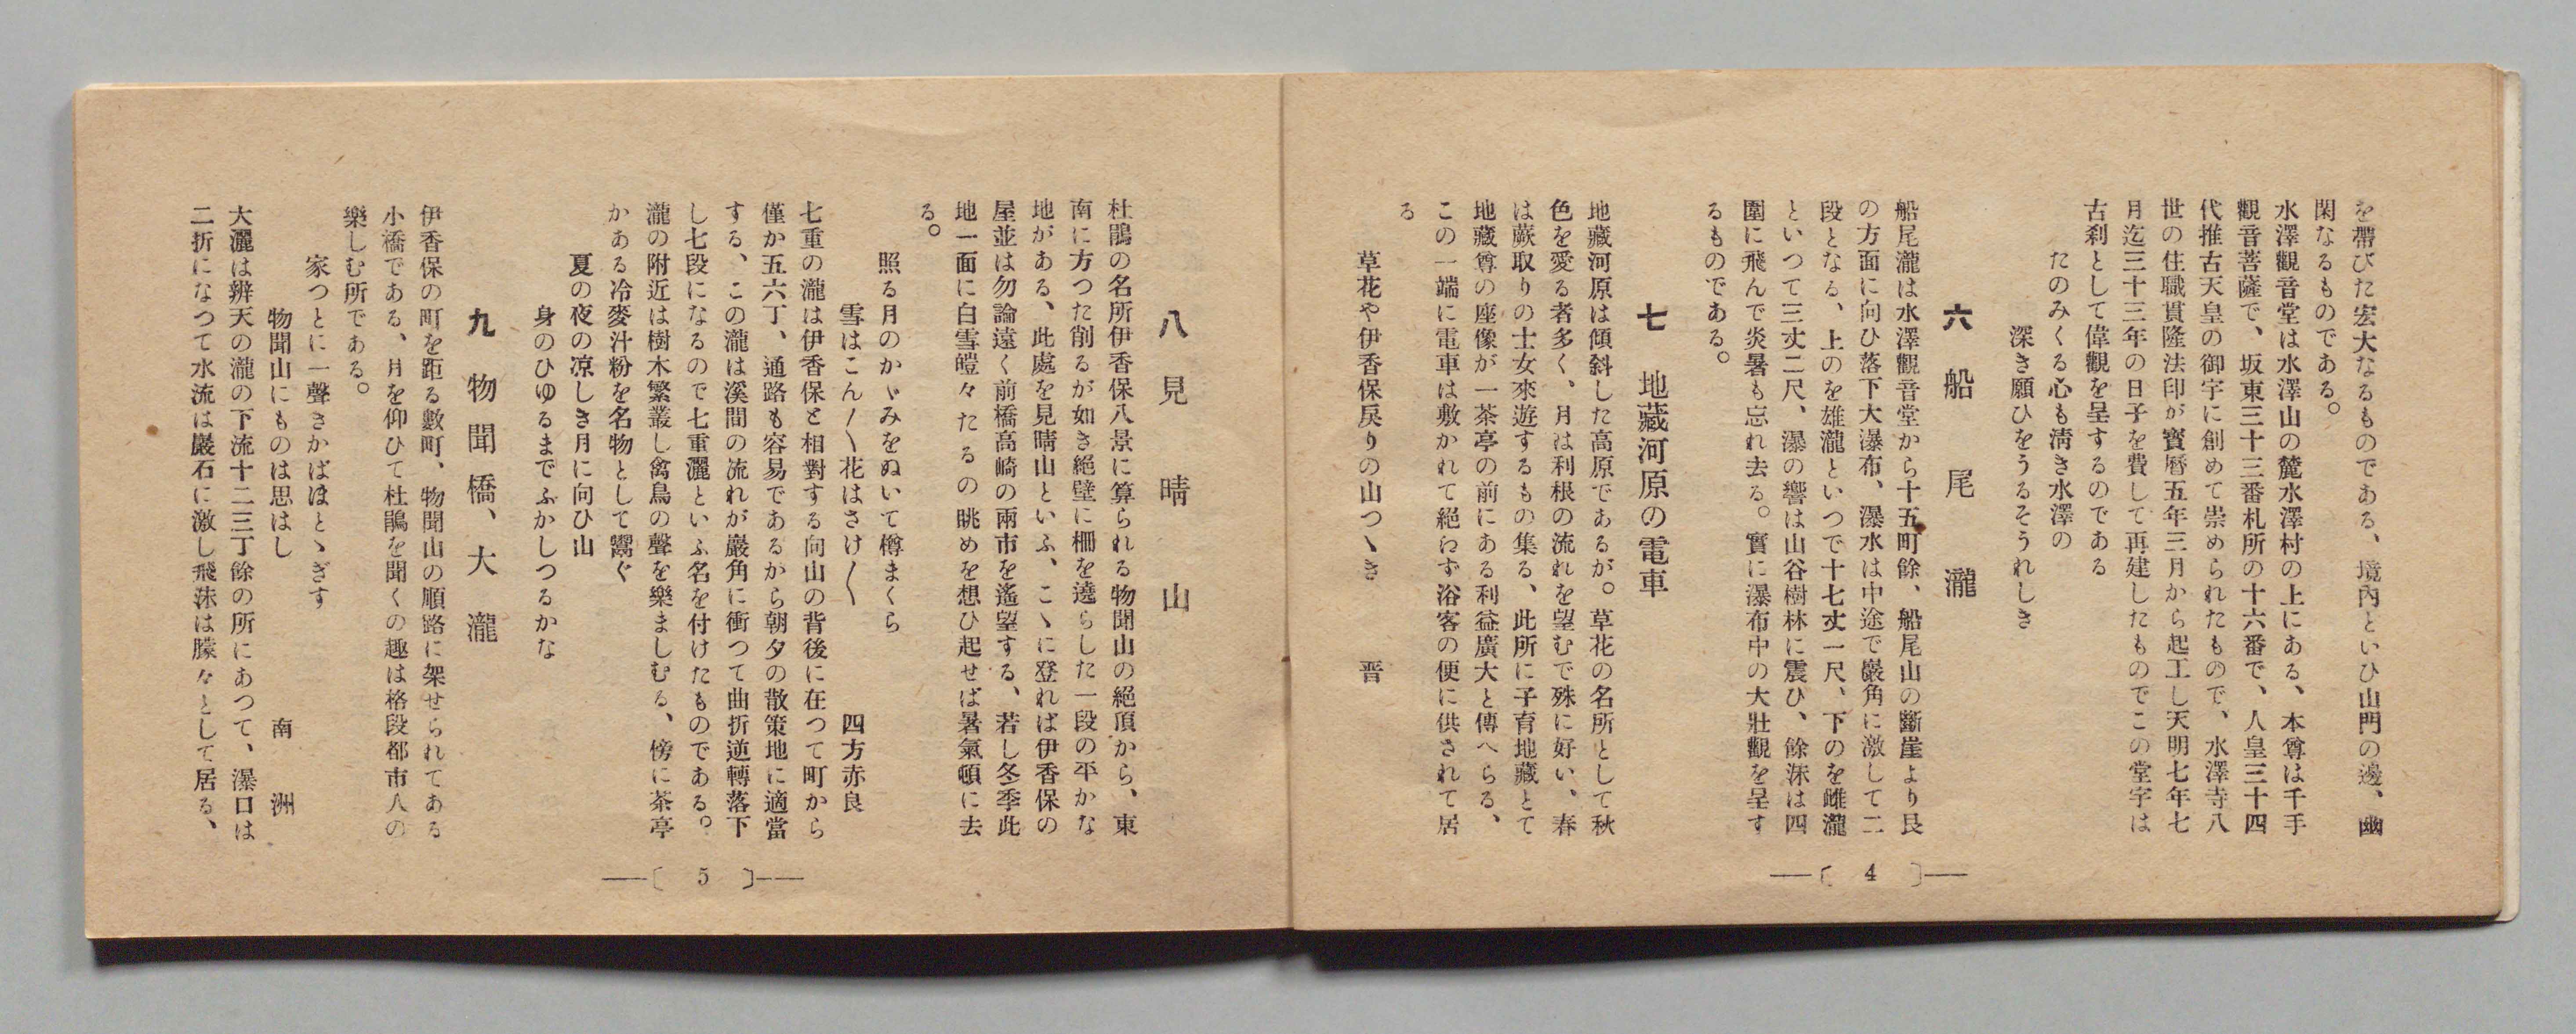 を帶びた宏大なるものである、境內といひ山門の邊、幽
閑なるものである。
水澤觀音堂は水澤山の麓水澤村の上にある、本尊は千手
觀音菩薩で、坂東三十三番札所の十六番で、人皇三十四
代推古天皇の御宇に創めて崇められたもので、水澤寺八
世の住職貫隆法印が寳曆五年三月から起工し天明七年七
月迄三十三年の日子を費して再建したものでこの堂宇は
古刹として偉觀を呈するのである
たのみくる心も淸き水澤の
深き願ひをうるそうれしき
六　船尾瀧
船尾瀧は水澤觀音堂から十五町餘、船尾山の斷崖より艮
の方面に向ひ落下大瀑布、瀑水は中途で巖角に激して二
段となる、上のを雄瀧といつで十七丈一尺、下のを雌瀧
といつて三丈二尺、瀑の響は山谷樹林に震ひ、餘沫は四
圍に飛んで炎暑も忘れ去る。實に瀑布中の大壯觀を呈す
るものである。
七　地藏河原の電車
地藏河原は傾斜した高原であるが。草花の名所として秋
色を愛る者多く、月は利根の流れを望むで殊に好い、春
は蕨取りの士女來遊するもの集る、此所に子育地藏とて
地藏尊の座像が一茶亭の前にある利益廣大と傳へらる、
この一端に電車は敷かれて絕ねず浴客の便に供されて居
る
草花や伊香保戾りの山つゝき　晋
―〔 4 〕―
八　見晴山
杜鵑の名所伊香保八景に算られる物聞山の絕頂から、東
南に方つた削るが如き絕壁に柵を遶らした一段の平かな
地がある、此處を見晴山といふ、こゝに登れば伊香保の
屋並は勿論遠く前橋高崎の兩市を遙望する、若し冬季此
地一面に白雪皚々たるの眺めを想ひ起せば暑氣頓に去
る。
照る月のかゞみをぬいて樽まくら
雪はこん〳〵花はさけ〳〵　四方赤良
七重の瀧は伊香保と相對する向山の背後に在つて町から
僅か五六丁、通路も容易であるから朝夕の散策地に適當
する、この瀧は溪間の流れが巖角に衝つて曲折逆轉落下
し七段になるので七重灑といふ名を付けたものである。
瀧の附近は樹木繁叢し禽鳥の聲を樂ましむる、傍に茶亭
かある冷麥汁粉を名物として鬻ぐ
夏の夜の凉しき月に向ひ山
身のひゆるまでぶかしつるかな
九　物聞橋、大瀧
伊香保の町を距る數町、物聞山の順路に架せられてある
小橋である、月を仰ひて杜鵑を聞くの趣は格段都市人の
樂しむ所である。
家つとに一聲きかばほとゝぎす
物聞山にものは思はし　南洲
大灑は辨天の瀧の下流十二三丁餘の所にあつて、瀑口は
二折になつて水流は巖石に激し飛沫は朦々として居る、
―〔 5 〕―